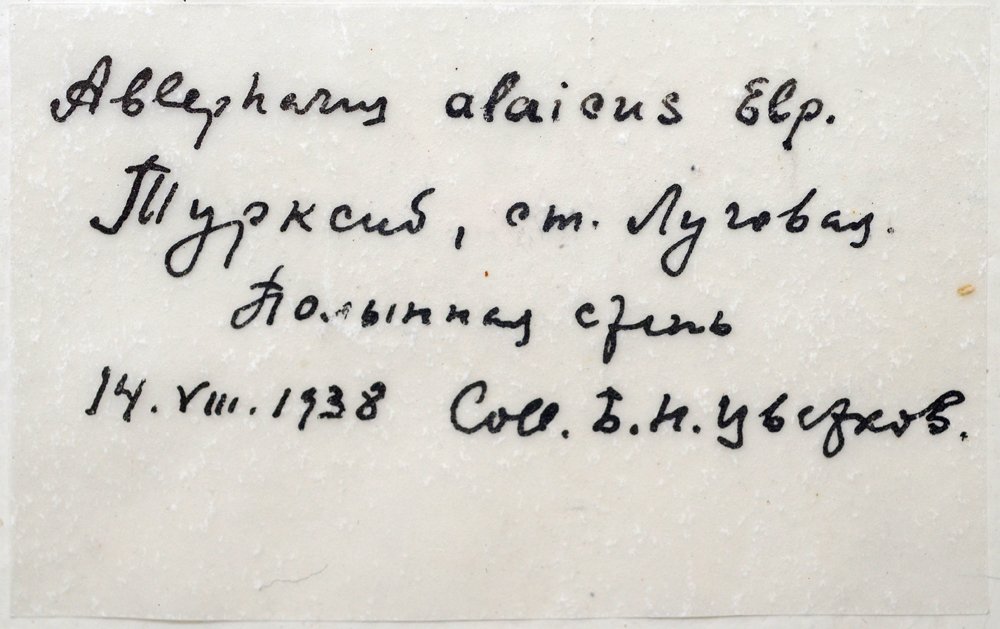 Ablepharus alaicus Elp.
Турксиб, ст. Луговая.
Полынная степь
14.VIII.1938 Coll. Б.Н. Цветков.